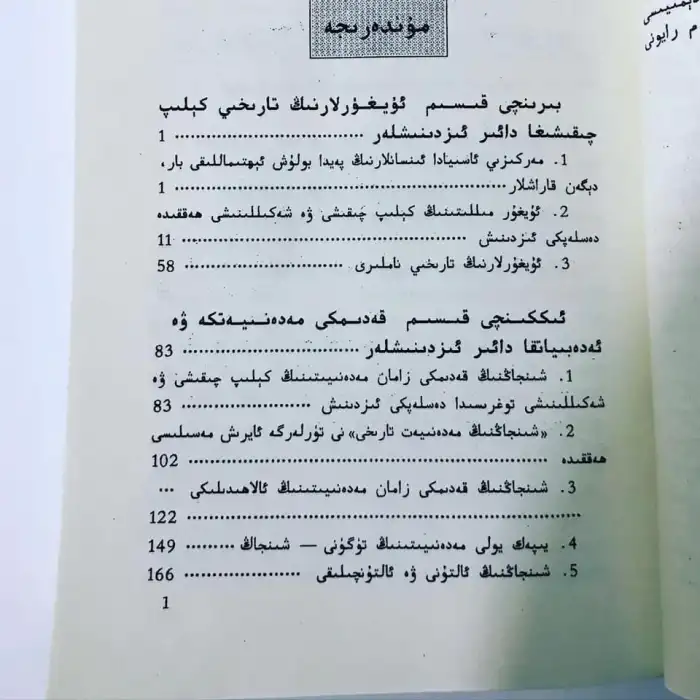 مۇندەرىجە
بىرىنچى قىسىم ئۇيغۇرلارنىڭ تارىخىي كېلىپ
چىقىشىغا دائىر ئىزدىنىشلەر ................... 1
1. مەركىزىي ئاسىيادا ئىنسانلارنىڭ پەيدا بولۇش ئېھتىماللىقى بار،
دېگەن قاراشلار ................... 1
2. ئۇيغۇر مىللىتىنىڭ كېلىپ چىقىشى ۋە شەكىللىنىشى ھەققىدە
دەسلەپكى ئىزدىنىش ................... 11
3. ئۇيغۇرلارنىڭ تارىخىي ناملىرى ................... 58
ئىككىنچى قىسىم قەدىمكى مەدەنىيەتكە ۋە
ئەدەبىياتقا دائىر ئىزدىنىشلەر ................... 83
1. شىنجاڭنىڭ قەدىمكى زامان مەدەنىيىتىنىڭ كېلىپ چىقىشى ۋە
شەكىللىنىشى توغرىسىدا دەسلەپكى ئىزدىنىش ................... 83
2. «شىنجاڭنىڭ مەدەنىيەت تارىخى» نى تۈرلەرگە ئايرىش مەسىلىسى
ھەققىدە ................... 102
3. شىنجاڭنىڭ قەدىمكى زامان مەدەنىيىتىنىڭ ئالاھىدىلىكى ...
................... 122
4. يىپەك يولى مەدەنىيىتىنىڭ تۈگۈنى — شىنجاڭ ......... 149
5. شىنجاڭنىڭ ئالتۇنى ۋە ئالتۇنچىلىقى ................... 166
1
م رايونى